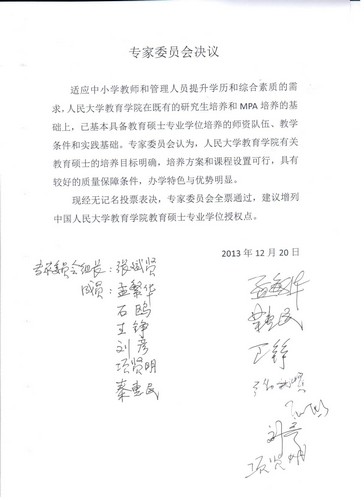 专家委员会决议
适应中小学教师和管理人员提升学历和综合素质的需
求，人民大学教育学院在既有的研究生培养和 MPA 培养的基
础上，已基本具备教育硕士专业学位培养的师资队伍、教学
条件和实践基础。专家委员会认为，人民大学教育学院有关
教育硕士的培养目标明确，培养方案和课程设置可行，具有
较好的质量保障条件，办学特色与优势明显。
现经无记名投票表决，专家委员会全票通过，建议增列
中国人民大学教育学院教育硕士专业学位授权点。
2013 年 12 月 20 日
专家委员会组长：张斌贤
成员：孟繁华
石鸥
王铮
刘彦
项贤明
秦惠民
孟繁华
秦惠民
王铮
张斌贤
石鸥
刘彦
项贤明